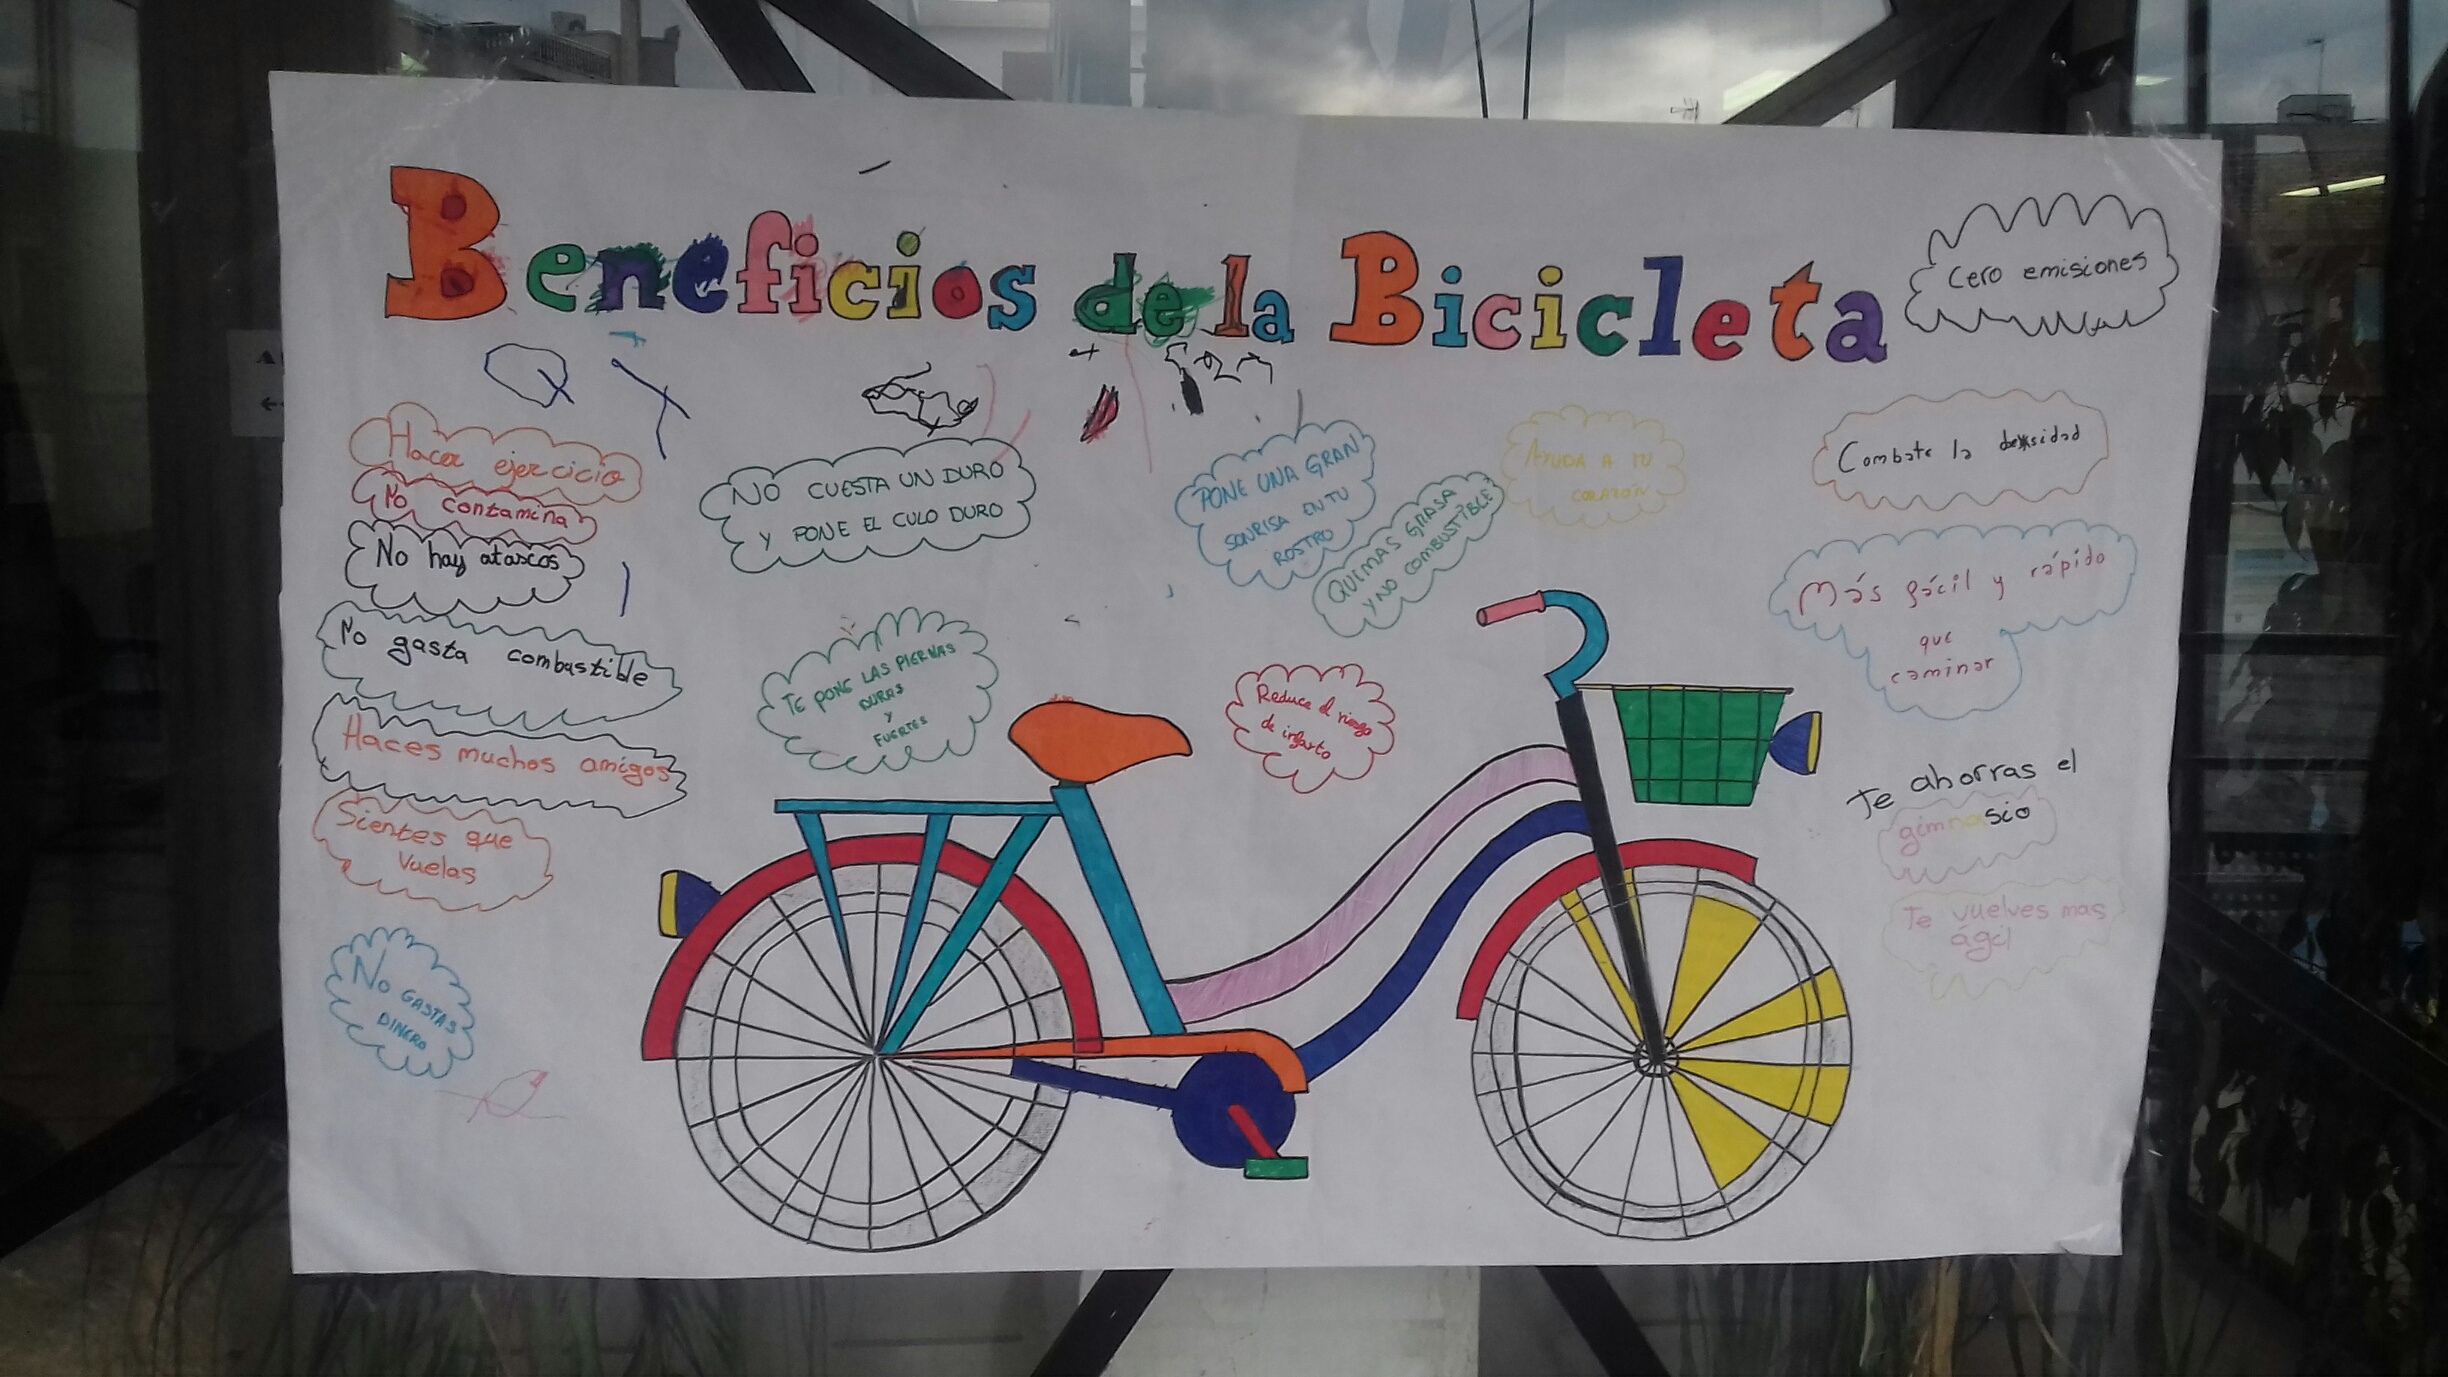 Beneficios de la Bicicleta
Cero emisiones
Hacer ejercicio
No contamina
No hay atascos
No gasta combustible
Haces muchos amigos
Sientes que
vuelas
No GASTAS
DINERO
NO CUESTA UN DURO
Y PONE EL CULO DURO
TE PONE LAS PIERNAS
DURAS
Y
FUERTES
PONE UNA GRAN
SONRISA EN TU
ROSTRO
QUEMAS GRASA
Y NO COMBUSTIBLE
AYUDA A TU
CORAZÓN
Reduce el riesgo
de infarto
Combate la
Más fácil y rápido
que
caminar
Te ahorras el
gimnasio
Te vuelves mas
ágil